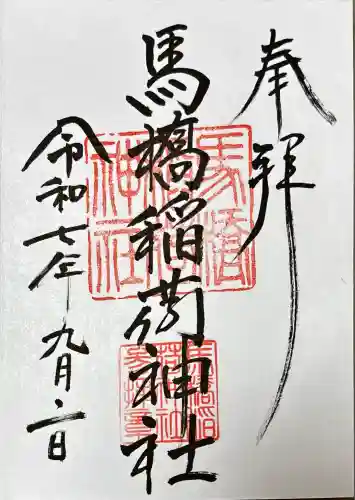 奉拝
馬橋稲荷神社
令和七年九月二日
馬橋
神社